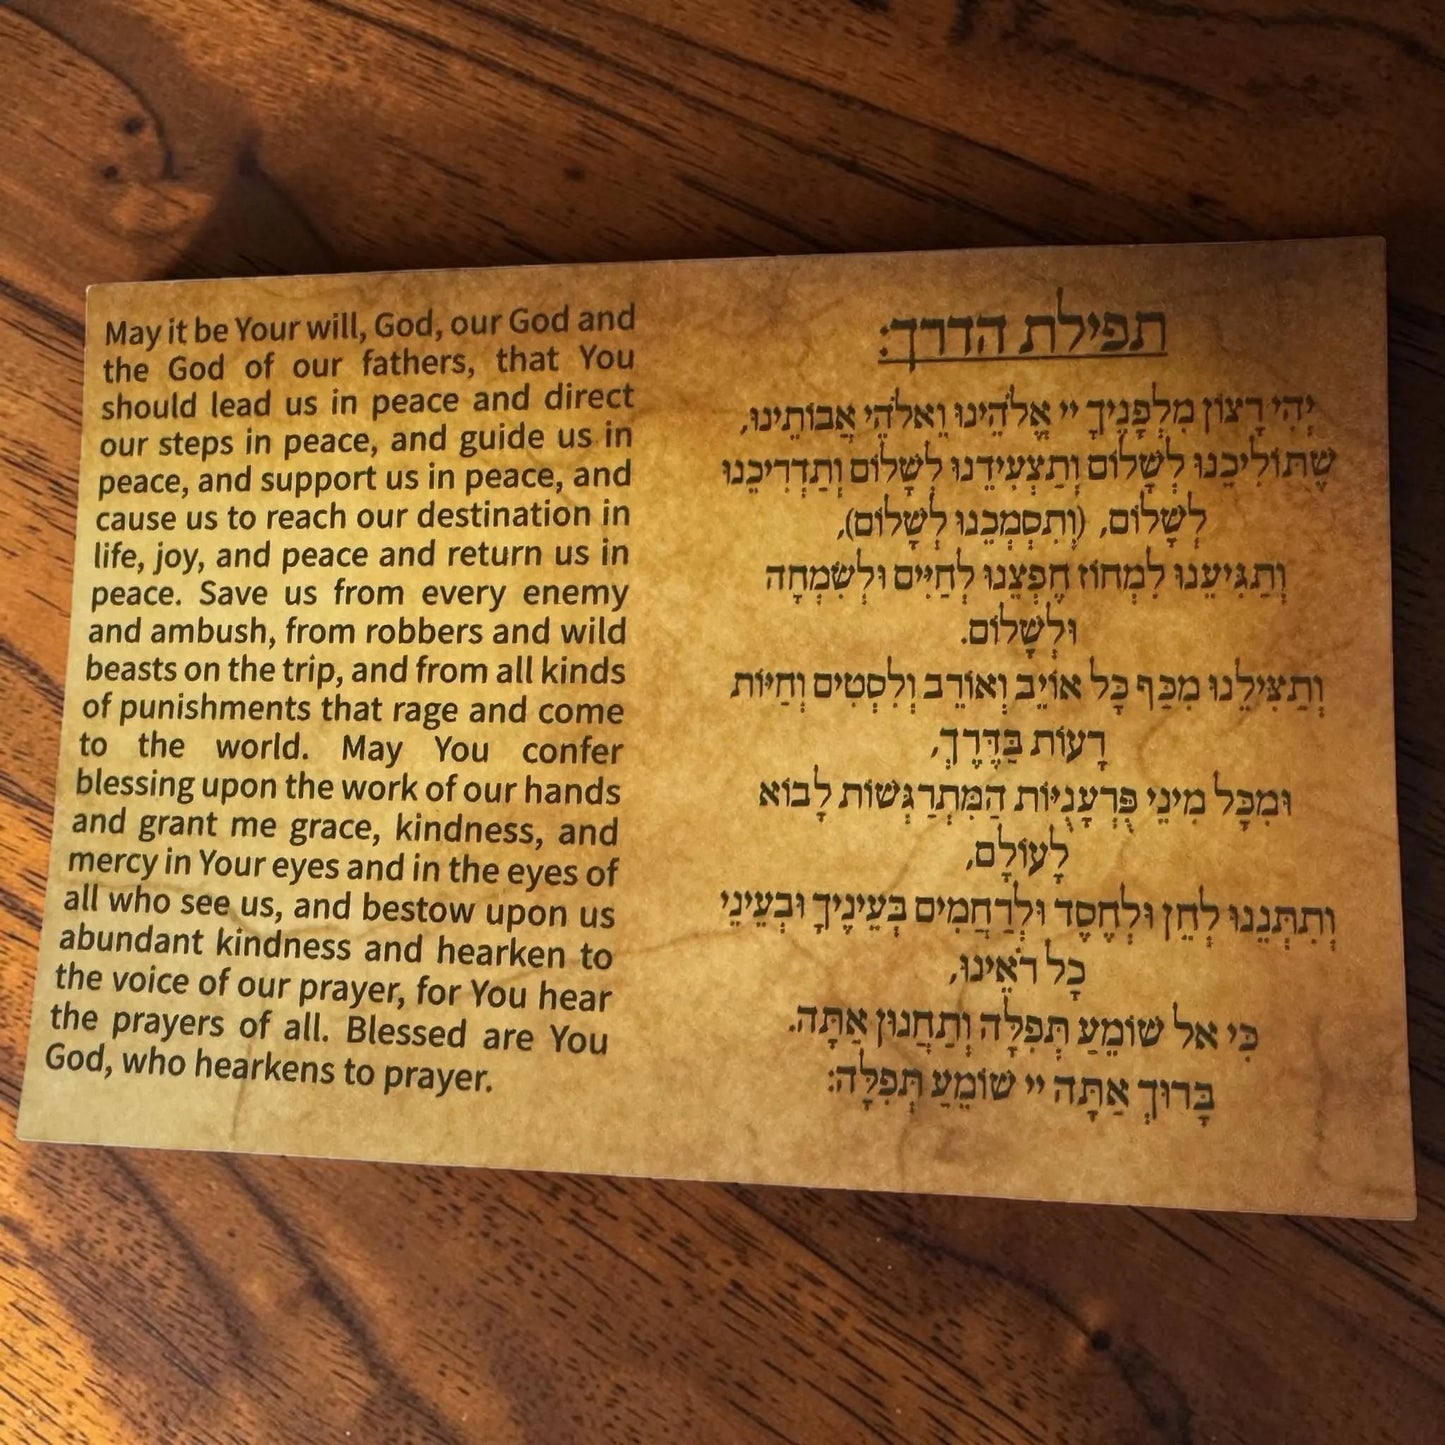 May it be Your will, God, our God and
the God of our fathers, that You
should lead us in peace and direct
our steps in peace, and guide us in
peace, and support us in peace, and
cause us to reach our destination in
life, joy, and peace and return us in
peace. Save us from every enemy
and ambush, from robbers and wild
beasts on the trip, and from all kinds
of punishments that rage and come
to the world. May You confer
blessing upon the work of our hands
and grant me grace, kindness, and
mercy in Your eyes and in the eyes of
all who see us, and bestow upon us
abundant kindness and hearken to
the voice of our prayer, for You hear
the prayers of all. Blessed are You
God, who hearkens to prayer.
תפילת הדרך:
יְהִי רָצוֹן מִלְּפָנֶיךָ יי אֱלֹהֵינוּ וֵאלֹהֵי אֲבוֹתֵינוּ,
שֶׁתּוֹלִיכֵנוּ לְשָׁלוֹם וְתַצְעִידֵנוּ לְשָׁלוֹם וְתַדְרִיכֵנוּ
לְשָׁלוֹם, (וְתִסְמְכֵנוּ לְשָׁלוֹם),
וְתַגִּיעֵנוּ לִמְחוֹז חֶפְצֵנוּ לְחַיִּים וּלְשִׂמְחָה
וּלְשָׁלוֹם.
וְתַצִּילֵנוּ מִכַּף כָּל אוֹיֵב וְאוֹרֵב וְלִסְטִים וְחַיּוֹת
רָעוֹת בַּדֶּרֶךְ,
וּמִכָּל מִינֵי פֻּרְעָנֻיּוֹת הַמִּתְרַגְּשׁוֹת לָבוֹא
לָעוֹלָם,
וְתִתְּנֵנוּ לְחֵן וּלְחֶסֶד וּלְרַחֲמִים בְּעֵינֶיךָ וּבְעֵינֵי
כָל רֹאֵינוּ,
כִּי אל שׁוֹמֵעַ תְּפִלָּה וְתַחֲנוּן אַתָּה.
בָּרוּךְ אַתָּה יי שׁוֹמֵעַ תְּפִלָּה: